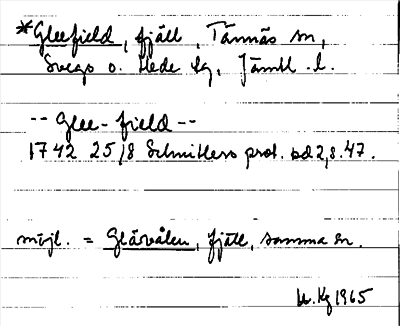 *Gleefield, fjäll, Tännäs sn,
Svegs o. Hede tg, Jämtl. l.
-- Glee-field --
1742 25/8 Schnitlers prot. bd 2, s. 47.
möjl. = Glärvålen, fjäll, samma sn.
Kg 1965